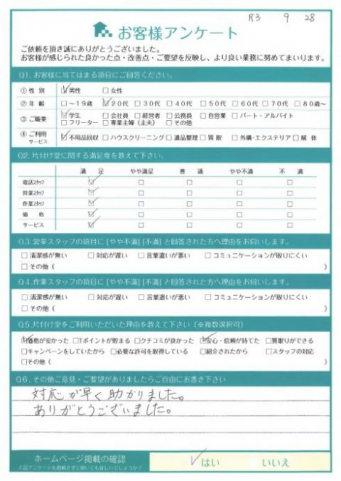 R3 9 28
お客様アンケート
ご依頼を頂き誠にありがとうございました。
お客様が感じられた良かった点・改善点・ご要望を反映し、より良い業務に努めてまいります。
Q1. お客様に当てはまる項目にご回答ください。
① 性別 ☑男性 □女性
② 年齢 □～19歳 ☑20代 □30代 □40代 □50代 □60代 □70代 □80歳～
③ ご職業 ☑学生 □会社員 □経営者 □公務員 □自営業 □パート・アルバイト
□フリーター □専業主婦(主夫) □その他
④ ご利用サービス ☑不用品回収 □ハウスクリーニング □遺品整理 □買取 □外構・エクステリア □解体
Q2. 片付け堂に関する満足度を教えて下さい。
満足 やや満足 普通 やや不満 不満
電話スタッフ ☑ □ □ □ □
営業スタッフ ☑ □ □ □ □
作業スタッフ ☑ □ □ □ □
価格 ☑ □ □ □ □
サービス ☑ □ □ □ □
Q3. 営業スタッフの項目に[やや不満][不満]と回答された方へ理由をお伺いします。
□清潔感が無い □対応が遅い □言葉遣いが悪い □コミュニケーションが取りにくい
□その他(
Q4. 作業スタッフの項目に[やや不満][不満]と回答された方へ理由をお伺いします。
□清潔感が無い □対応が遅い □言葉遣いが悪い □コミュニケーションが取りにくい
□その他(
Q5. 片付け堂をご利用いただいた理由を教えて下さい(※複数選択可)
☑価格が安かった □Tポイントが貯まる □クチコミが良かった ☑安心・信頼が持てた □買取りができる
□キャンペーンをしていたから □必要な許可を取得している □紹介されたから □スタッフの対応
□その他(
Q6. その他ご意見・ご要望がありましたらご自由にお書き下さい
対応が早く助かりました。
ありがとうございました。
ホームページ掲載の確認 ✓はい いいえ